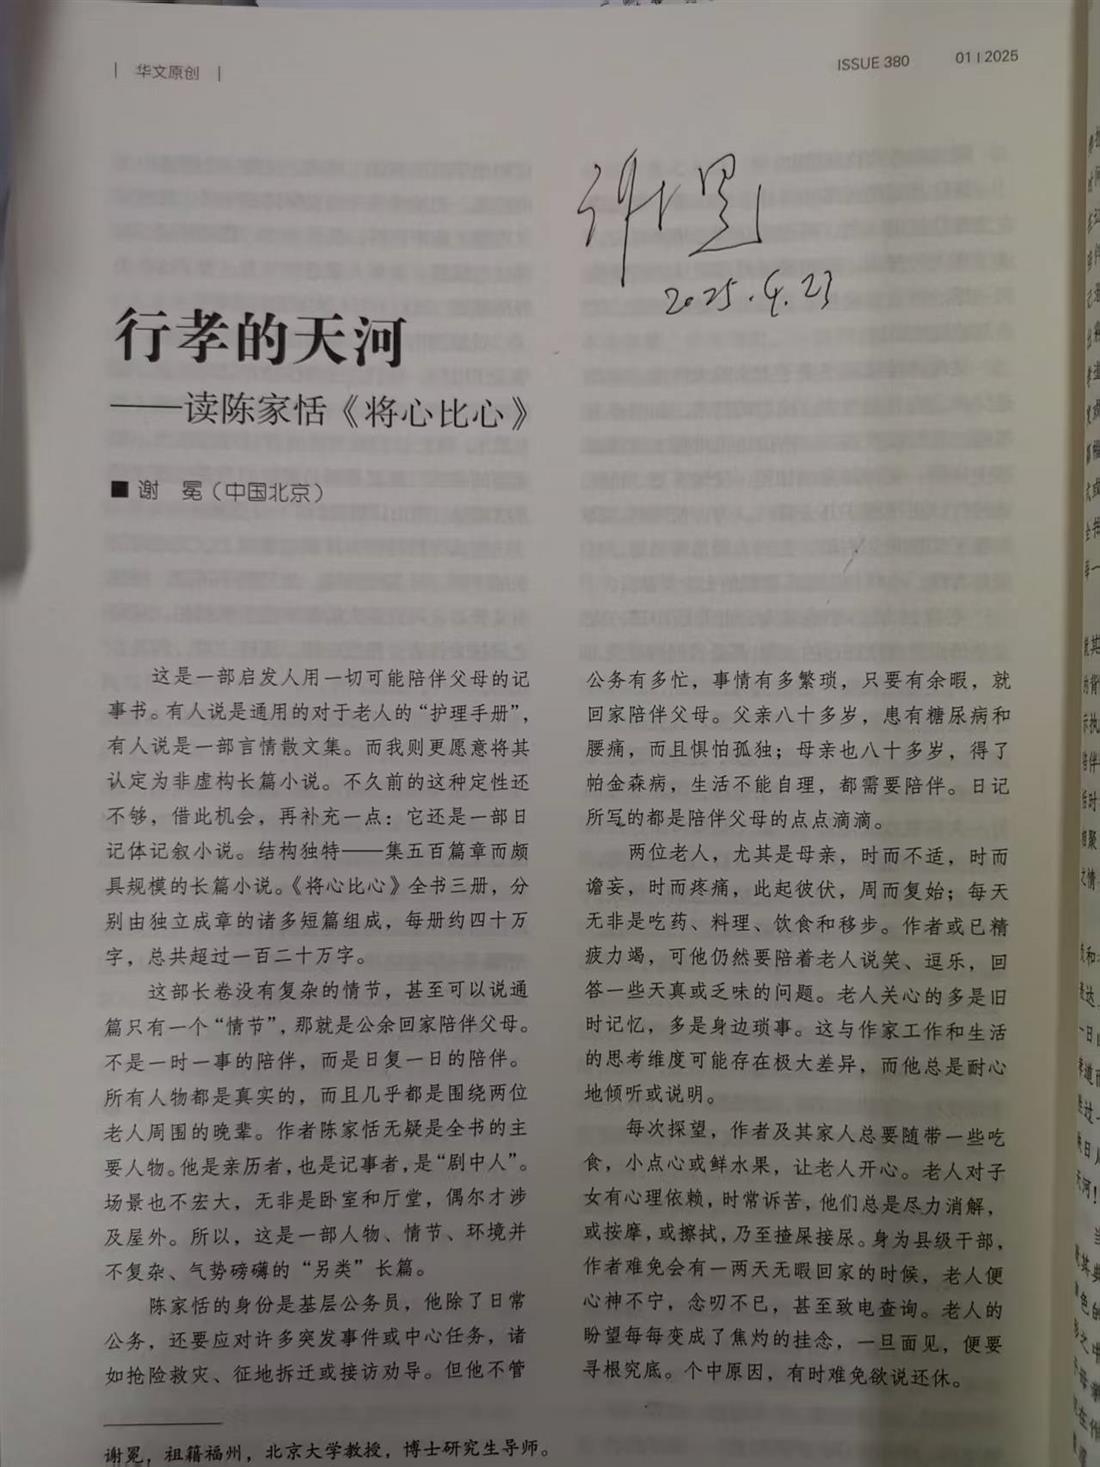 | 华文原创 |
ISSUE 380 01 | 2025
谢冕
2025.4.23
行孝的天河
——读陈家恬《将心比心》
■ 谢 冕（中国北京）
这是一部启发人用一切可能陪伴父母的记
事书。有人说是通用的对于老人的“护理手册”，
有人说是一部言情散文集。而我则更愿意将其
认定为非虚构长篇小说。不久前的这种定性还
不够，借此机会，再补充一点：它还是一部日
记体记叙小说。结构独特——集五百篇章而颇
具规模的长篇小说。《将心比心》全书三册，分
别由独立成章的诸多短篇组成，每册约四十万
字，总共超过一百二十万字。
这部长卷没有复杂的情节，甚至可以说通
篇只有一个“情节”，那就是公余回家陪伴父母。
不是一时一事的陪伴，而是日复一日的陪伴。
所有人物都是真实的，而且几乎都是围绕两位
老人周围的晚辈。作者陈家恬无疑是全书的主
要人物。他是亲历者，也是记事者，是“剧中人”。
场景也不宏大，无非是卧室和厅堂，偶尔才涉
及屋外。所以，这是一部人物、情节、环境并
不复杂、气势磅礴的“另类”长篇。
陈家恬的身份是基层公务员，他除了日常
公务，还要应对许多突发事件或中心任务，诸
如抢险救灾、征地拆迁或接访劝导。但他不管
公务有多忙，事情有多繁琐，只要有余暇，就
回家陪伴父母。父亲八十多岁，患有糖尿病和
腰痛，而且惧怕孤独；母亲也八十多岁，得了
帕金森病，生活不能自理，都需要陪伴。日记
所写的都是陪伴父母的点点滴滴。
两位老人，尤其是母亲，时而不适，时而
谵妄，时而疼痛，此起彼伏，周而复始；每天
无非是吃药、料理、饮食和移步。作者或已精
疲力竭，可他仍然要陪着老人说笑、逗乐，回
答一些天真或乏味的问题。老人关心的多是旧
时记忆，多是身边琐事。这与作家工作和生活
的思考维度可能存在极大差异，而他总是耐心
地倾听或说明。
每次探望，作者及其家人总要随带一些吃
食，小点心或鲜水果，让老人开心。老人对子
女有心理依赖，时常诉苦，他们总是尽力消解，
或按摩，或擦拭，乃至揸屎接尿。身为县级干部，
作者难免会有一两天无暇回家的时候，老人便
心神不宁，念叨不已，甚至致电查询。老人的
盼望每每变成了焦灼的挂念，一旦面见，便要
寻根究底。个中原因，有时难免欲说还休。
谢冕，祖籍福州，北京大学教授，博士研究生导师。